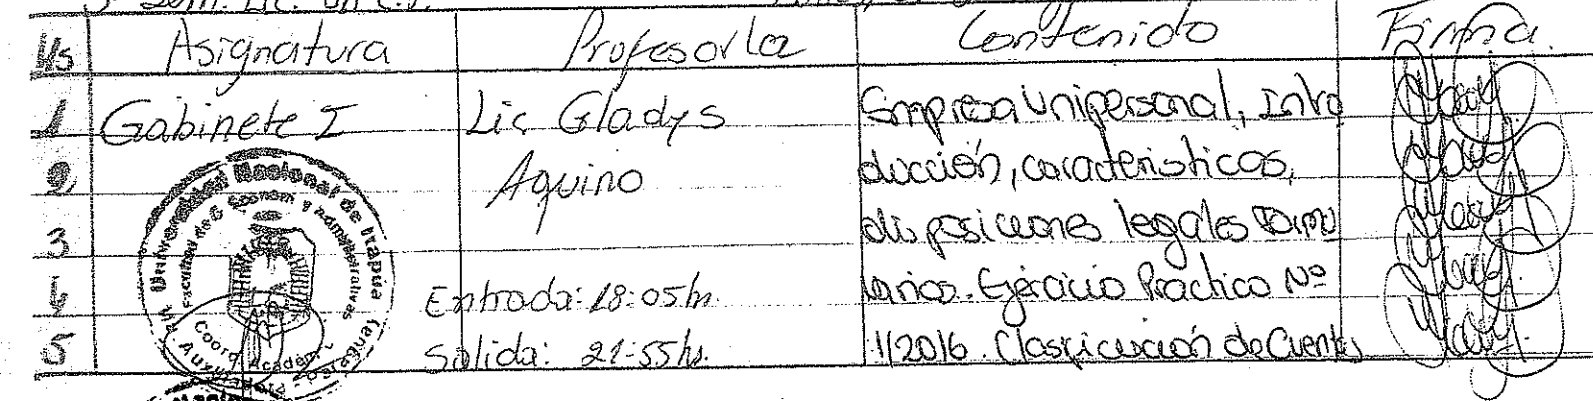 Hs Asignatura Profesor/a Contenido Firma.
1 Gabinete I Lic Gladys Empresa Unipersonal, Intro
2 Aquino ducción, características,
3 disposiciones legales
4 Entrada: 18:05hs. Ejercicio Práctico Nº
5 Salida: 21:55hs. 1/2016. Clasificación de Cuentas
Universidad Nacional de Itapúa
Facultad de C. Econom y administrativas
Coord. Académ
Ma. Auxiliadora - Paraguay